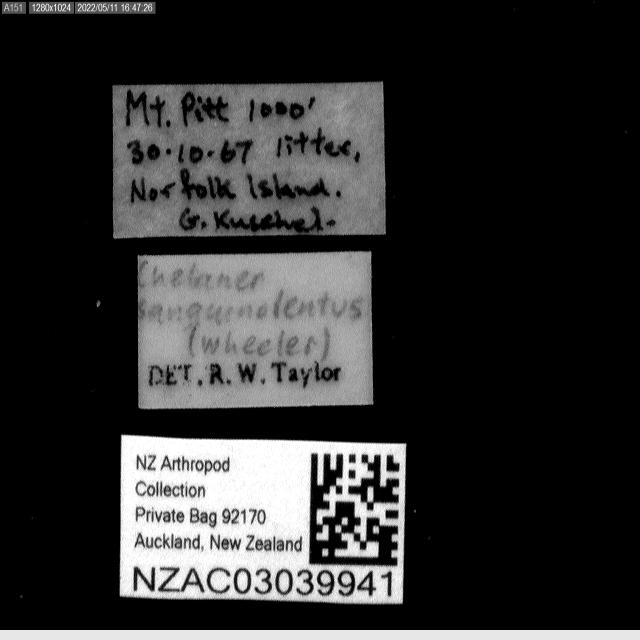 A151 1280x1024 2022/05/11 16:47:26
Mt. Pitt 1000'
30.10.67 litter,
Norfolk Island.
G. Kuschel.
Chelaner
sanguinolentus
(wheeler)
DET. R. W. Taylor
NZ Arthropod
Collection
Private Bag 92170
Auckland, New Zealand
NZAC03039941